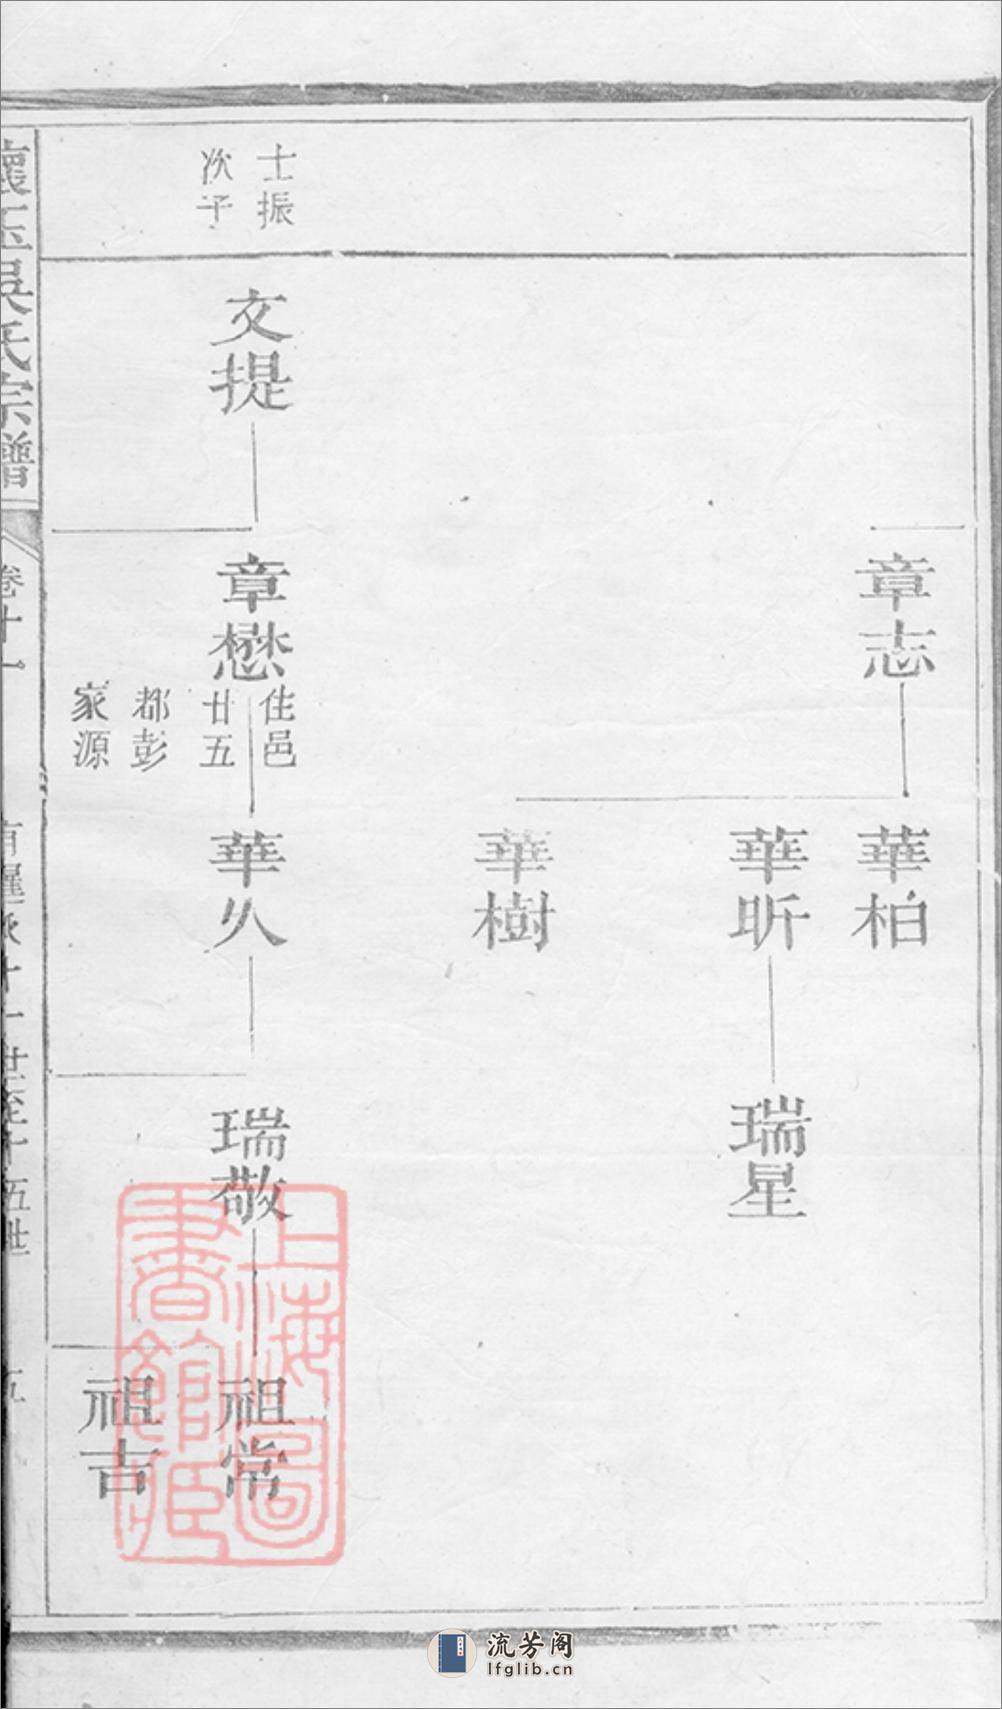 章志
華柏
華昕
瑞星
華樹
士振
次子
文提
章懋
住邑
廿五
都彭
家源
華火
瑞敬
祖常
祖吉
上海圖
書館藏
懷玉吳氏宗譜
卷十一
十一世至十五世
五
流芳阁
lfglib.cn